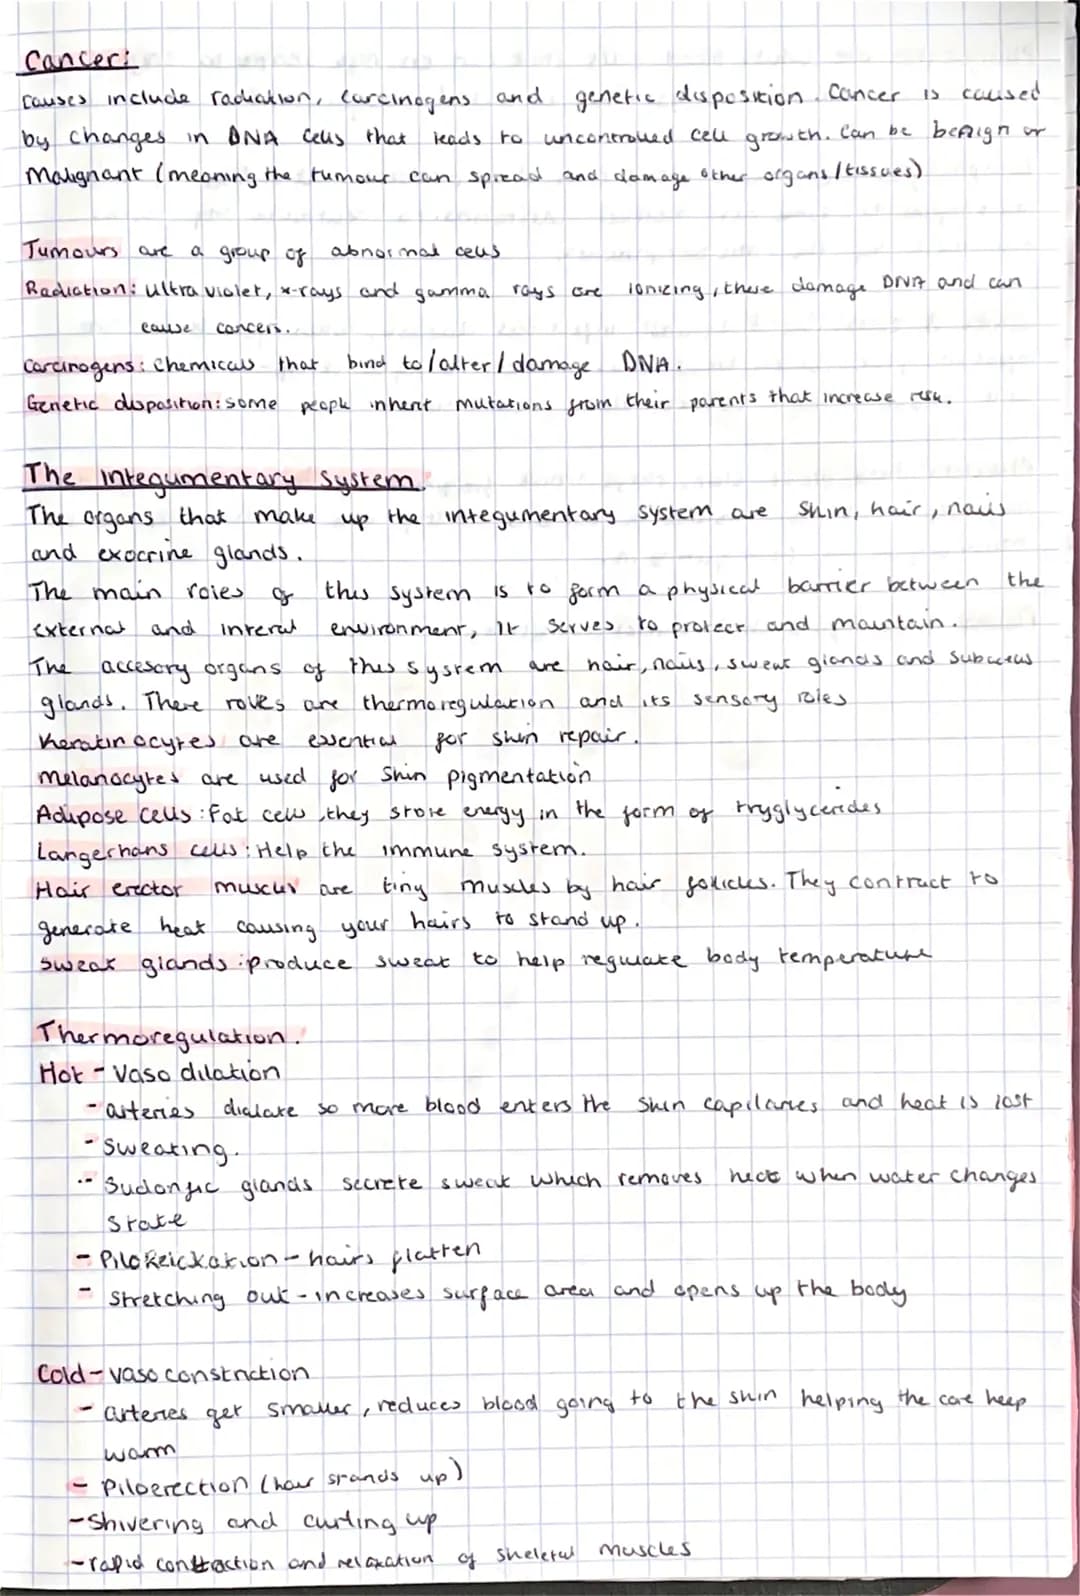 Cancer:
Causes include radiation, carcinogens and genetic disposition. Cancer is caused
by changes in DNA cells that leads to uncontrolled cell growth. Can be benign or
Malignant (meaning the tumour can spread and damage other organs/tissues)
Tumours are a group of abnormal cells
Radiation: Ultra violet, x-rays and gamma rays are ionizing, these damage DNA and can
cause cancers.
Carcinogens: Chemicals that bind to/alter/damage DNA.
Genetic disposition: some people inherit mutations from their parents that increase risk.
The Integumentary System
The organs that make up the integumentary system are skin, hair, nails
and exocrine glands.
The main roles of this system is to form a physical barrier between the
external and interal environment, It serves to protect and maintain.
The accesory organs of this system are hair, nails, sweat glands and
glands. There roles are thermoregulation and its sensory roles
Keratinocytes are essential for skin repair.
Melanocytes are used for skin pigmentation
Adipose cells: Fat cells, they store energy in the form of tryglycerides
Langerhans cells: Help the immune system.
Hair erector muscles are tiny muscles by hair folicles. They contract to
generate heat causing your hairs to stand up.
Sweat glands: produce sweat to help regulate body temperature
Thermoregulation.
Hot - Vaso dilation
- arteries dialate so more blood enters the skin capilaries and heat is lost
- Sweating.
- glands secrete sweat which removes heat when water changes
state
- hairs flatten
- Stretching out - increases surface area and opens up the body
Cold - vaso constriction
- arteries get smaller, reduces blood going to the skin helping the core keep
warm
- Piloerection (hair stands up)
- Shivering and curling up
- rapid contraction and relaxation of skeletal muscles